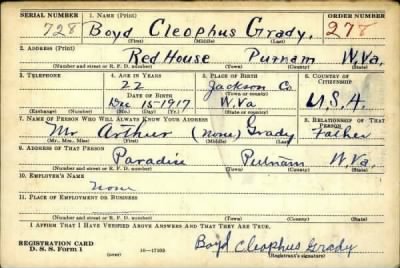 SERIAL NUMBER 1. NAME (Print) ORDER NUMBER
728 Boyd Cleophus Grady. 277
(First) (Middle) (Last)
2. ADDRESS (Print)
Red House Purnam W.Va.
(Number and street or R. F. D. number) (Town) (County) (State)
3. TELEPHONE 4. AGE IN YEARS 5. PLACE OF BIRTH 6. COUNTRY OF CITIZENSHIP
22 Jackson Co.
DATE OF BIRTH (Town or county)
Dec 15-1917 W.Va U.S.A.
(Exchange) (Number) (Mo.) (Day) (Yr.) (State or country)
7. NAME OF PERSON WHO WILL ALWAYS KNOW YOUR ADDRESS 8. RELATIONSHIP OF THAT PERSON
Mr Arthur (none) Grady Father
(Mr., Mrs., Miss) (First) (Middle) (Last)
9. ADDRESS OF THAT PERSON
Paradise Putnam W.Va.
(Number and street or R. F. D. number) (Town) (County) (State)
10. EMPLOYER'S NAME
none
11. PLACE OF EMPLOYMENT OR BUSINESS
(Number and street or R. F. D. number) (Town) (County) (State)
I AFFIRM THAT I HAVE VERIFIED ABOVE ANSWERS AND THAT THEY ARE TRUE.
REGISTRATION CARD
D. S. S. Form 1 16-17105 Boyd Cleophus Grady
(Registrant's signature)